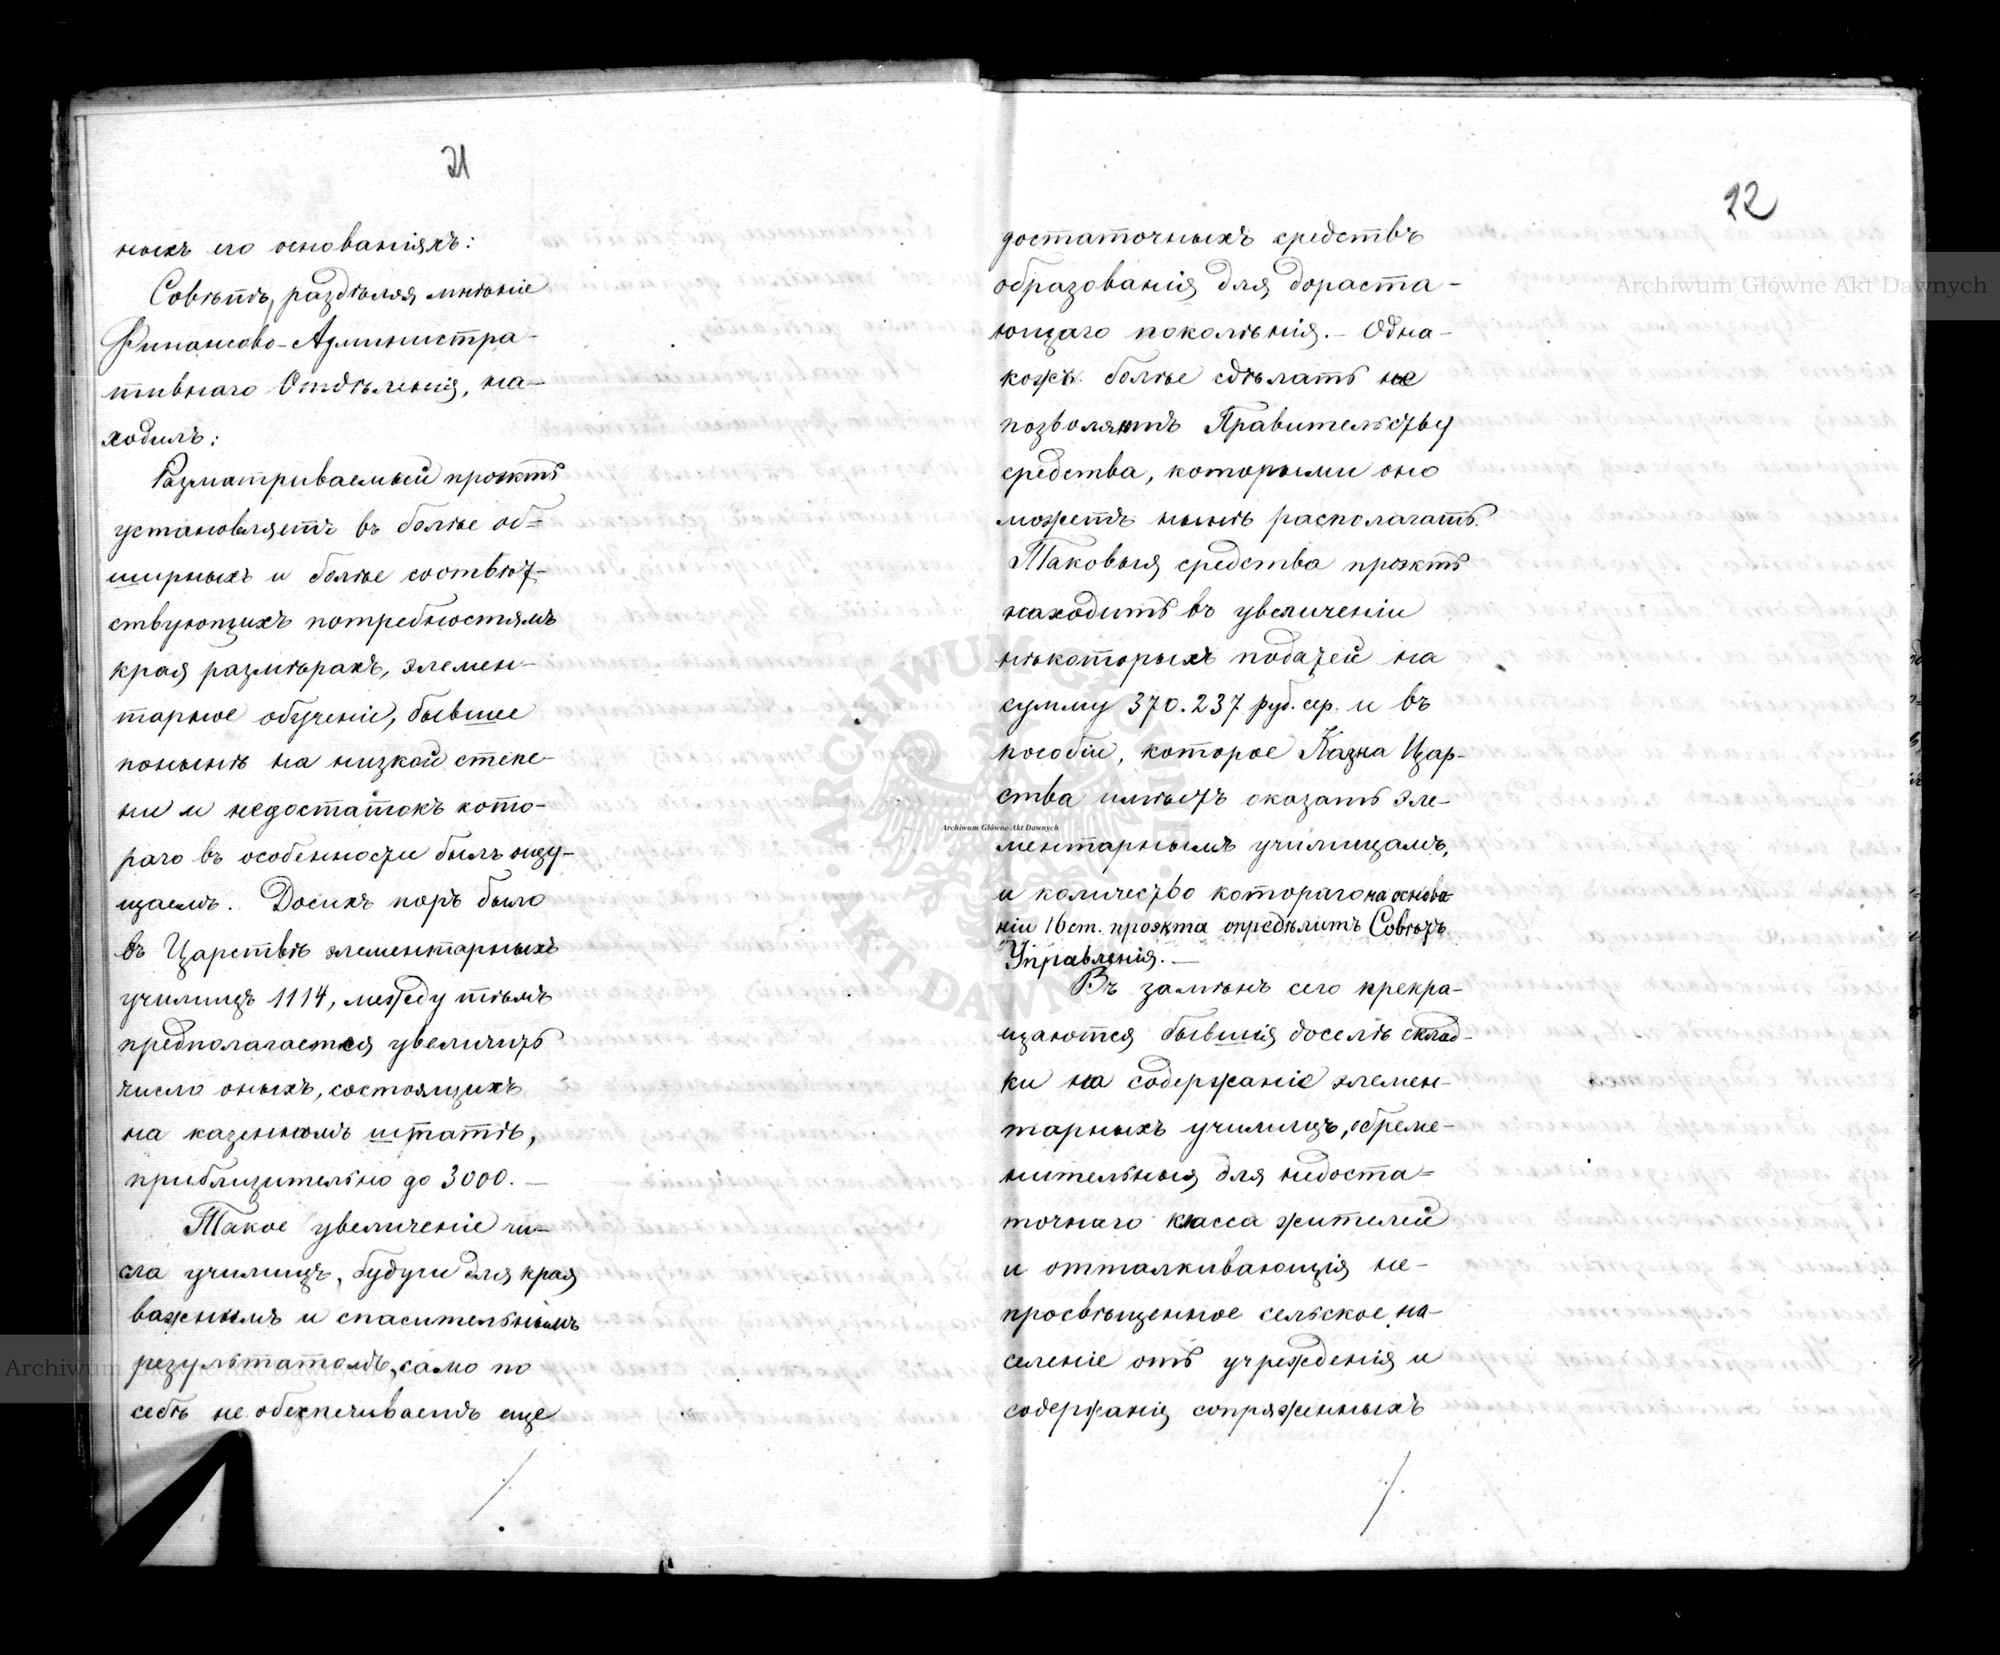 21
ныхъ его основаніяхъ:
Совѣтъ, раздѣляя мнѣніе
Финансово-Администра-
тивнаго Отдѣленія, на-
ходилъ:
Разматриваемый проэктъ
установляетъ въ болѣе об-
ширныхъ и болѣе соотвѣт-
ствующихъ потребностямъ
края размѣрахъ, элемен-
тарное обученіе, бывшее
понынѣ на низкой степе-
ни и недостатокъ кото-
раго въ особенности былъ ощу-
щаемъ. Досихъ поръ было
въ Царствѣ элементарныхъ
училищъ 1114, между тѣмъ
предполагается увеличить
число оныхъ, состоящихъ
на казенномъ штатѣ,
приблизительно до 3000. —
Такое увеличеніе чи-
сла училищъ, будучи для края
важнымъ и спасительнымъ
результатомъ, само по
себѣ не обезпечиваетъ еще
22
достаточныхъ средствъ
образованія для дораста-
ющаго поколѣнія. — Одна-
кожъ болѣе сдѣлать не
позволяютъ Правительству
средства, которыми оно
можетъ нынѣ располагать.
Таковыя средства проэктъ
находитъ въ увеличеніи
нѣкоторыхъ податей на
сумму 370.237 руб. сер. и въ
пособіи, которое Казна Цар-
ства имѣетъ оказать эле-
ментарнымъ училищамъ,
и количество котораго на основа-
ніи 16 ст. проэкта опредѣлитъ Совѣтъ
Управленія. —
Въ замѣнъ сего прекра-
щаются бывшія доселѣ склад-
ки на содержаніе элемен-
тарныхъ училищъ, обреме-
нительныя для недоста-
точнаго класса жителей
и отталкивающія не-
просвѣщенное сельское на-
селеніе отъ учрежденія и
содержанія сопряженныхъ
Archiwum Główne Akt Dawnych
Archiwum Główne Akt Dawnych
Archiwum Główne Akt Dawnych
ARCHIWUM GŁÓWNE AKT DAWNYCH